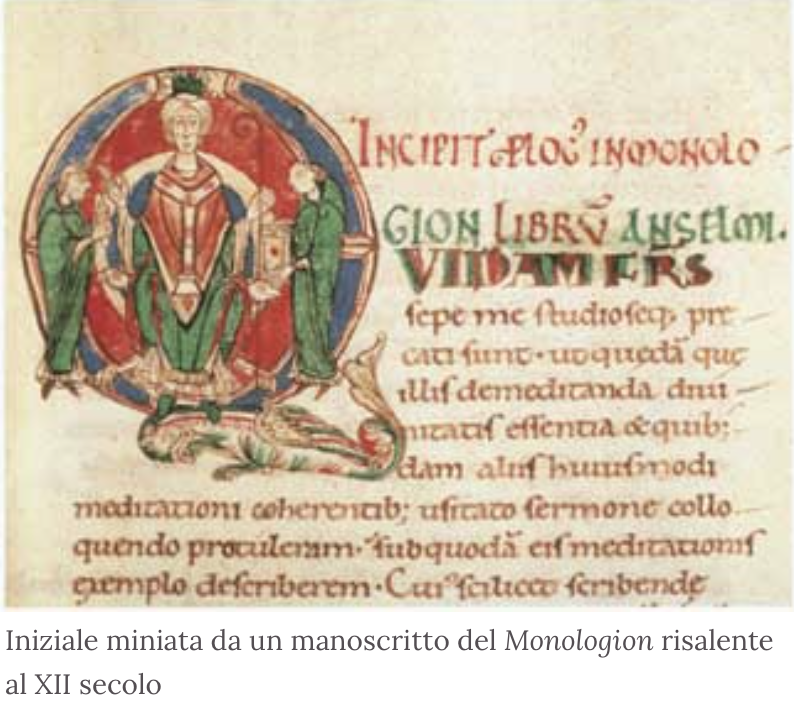 INCIPIT PLOG̕ IN MONOLO
GION LIBRŪ ANSELMI.
QUIDAM FRS
sepe me studioseq; pre
cati sunt. ut quedā que
illis de meditanda diui
nitatis essentia & quib;
dam aliis huiusmodi
meditationi coherentib; usitato sermone collo
quendo protuleram. sub quodā eis meditationis
exemplo describerem. Cui' scilicet scribende
Iniziale miniata da un manoscritto del Monologion risalente
al XII secolo